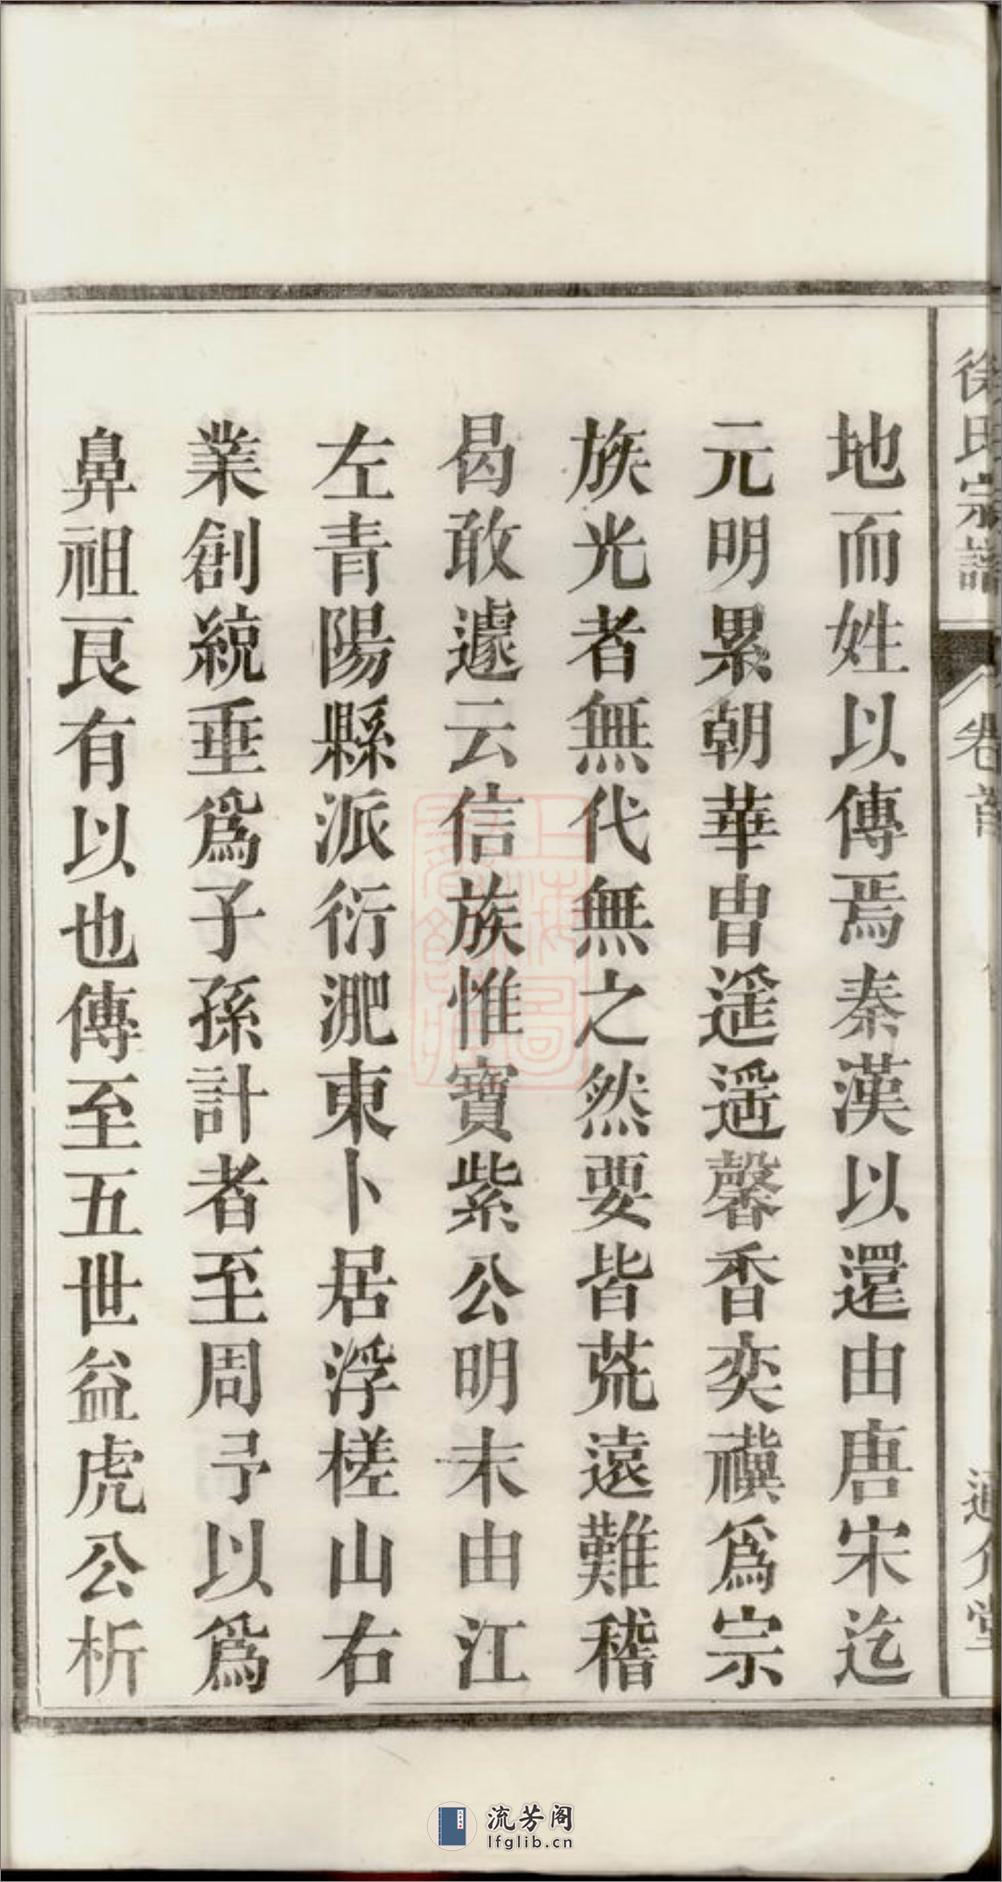 徐氏宗譜
卷首
地而姓以傳焉秦漢以還由唐宋迄
元明累朝華胄遥遥馨香奕禩爲宗
族光者無代無之然要皆荒遠難稽
曷敢遽云信族惟寶紫公明末由江
左青陽縣派衍淝東卜居浮槎山右
業創統垂爲子孫計者至周予以爲
鼻祖艮有以也傳至五世益虎公析
上海圖
書館藏
流芳阁
lfglib.cn